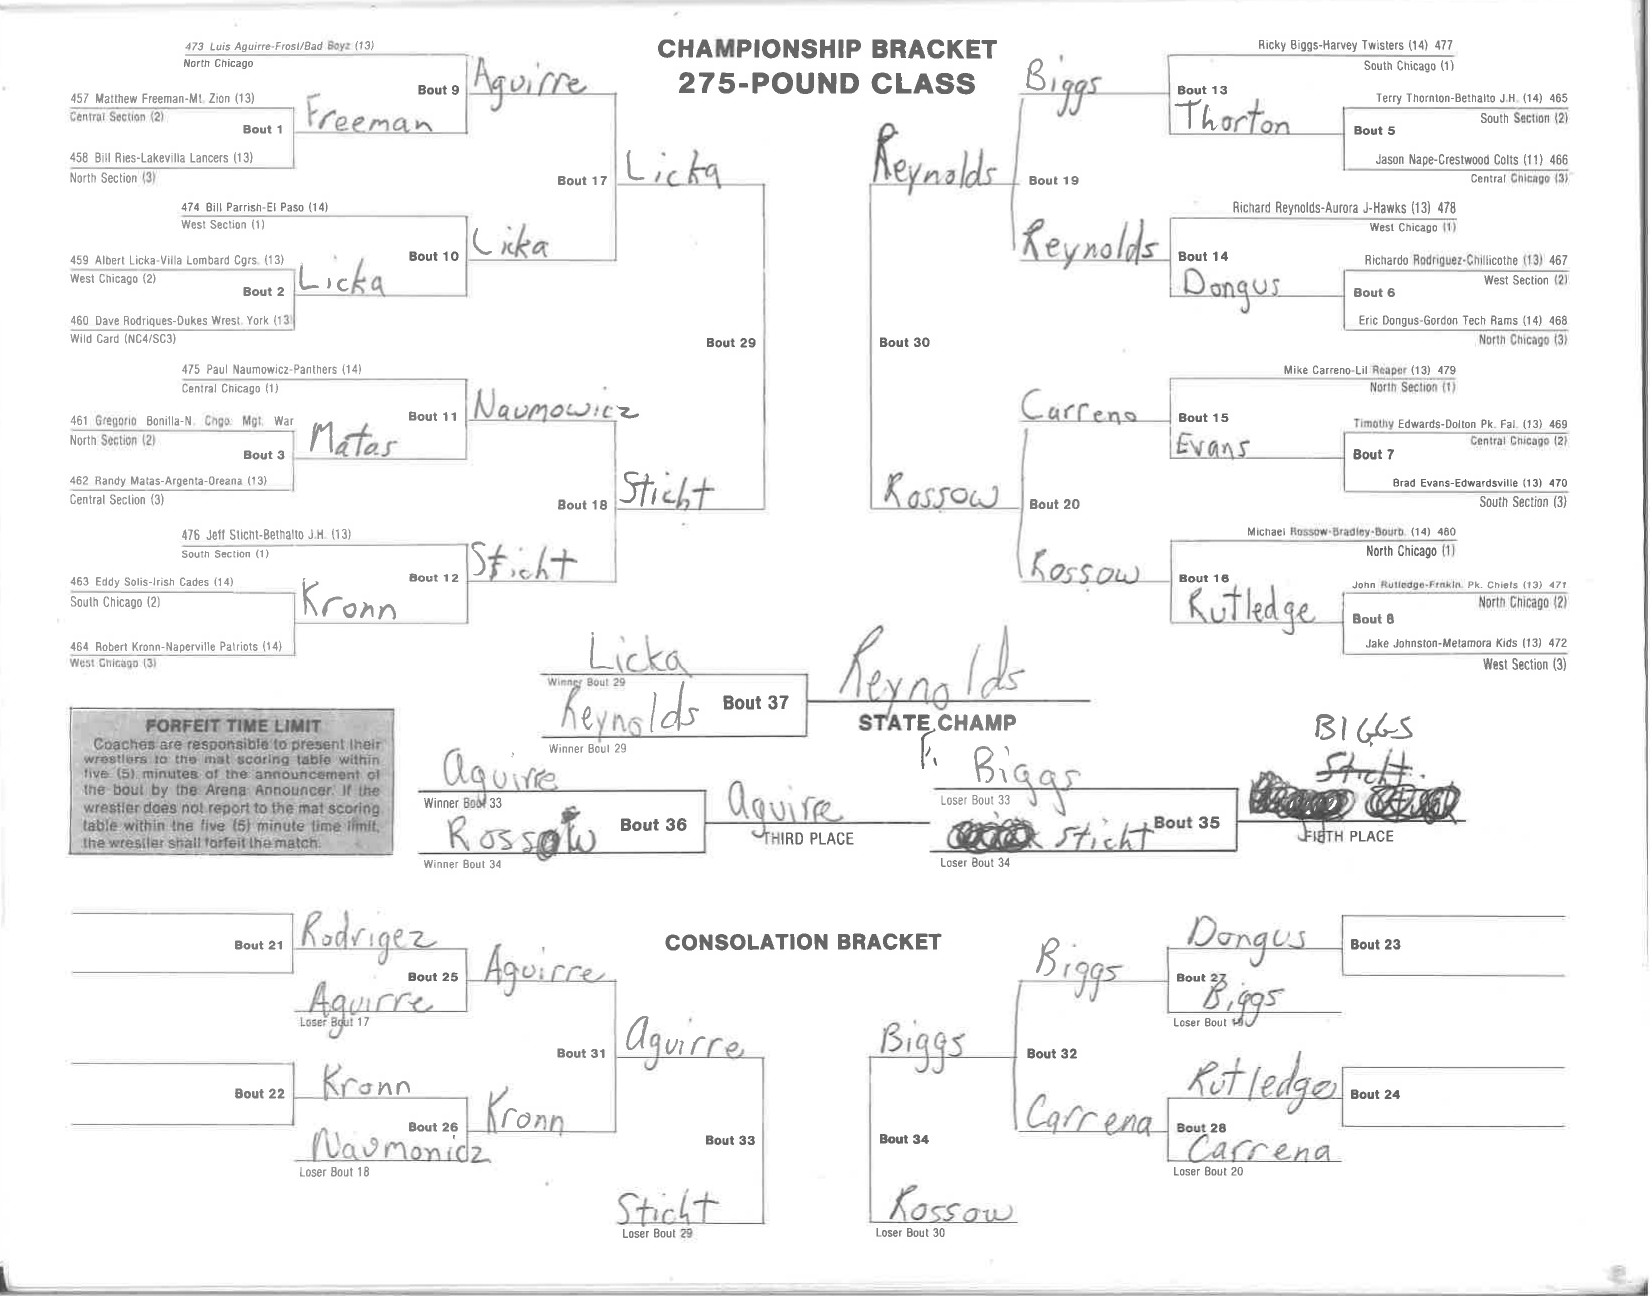 CHAMPIONSHIP BRACKET
275-POUND CLASS
473 Luis Aguirre-Frost/Bad Boyz (13)
North Chicago
Bout 9
Aguirre
457 Matthew Freeman-Mt. Zion (13)
Central Section (2)
Bout 1
Freeman
458 Bill Ries-Lakevilla Lancers (13)
North Section (3)
Bout 17
Licka
474 Bill Parrish-El Paso (14)
West Section (1)
Bout 10
Licka
459 Albert Licka-Villa Lombard Cgrs. (13)
West Chicago (2)
Bout 2
Licka
460 Dave Rodriques-Dukes Wrest. York (13)
Wild Card (NC4/SC3)
Bout 29
475 Paul Naumowicz-Panthers (14)
Central Chicago (1)
Bout 11
Naumowicz
461 Gregorio Bonilla-N. Chgo. Mgt. War
North Section (2)
Bout 3
Matas
462 Randy Matas-Argenta-Oreana (13)
Central Section (3)
Bout 18
Sticht
476 Jeff Sticht-Bethalto J.H. (13)
South Section (1)
Bout 12
Sticht
463 Eddy Solis-Irish Cades (14)
South Chicago (2)
Kronn
464 Robert Kronn-Naperville Patriots (14)
West Chicago (3)
Ricky Biggs-Harvey Twisters (14) 477
South Chicago (1)
Biggs
Bout 13
Thorton
Terry Thornton-Bethalto J.H. (14) 465
South Section (2)
Bout 5
Jason Nape-Crestwood Colts (11) 466
Central Chicago (3)
Reynolds
Bout 19
Richard Reynolds-Aurora J-Hawks (13) 478
West Chicago (1)
Reynolds
Bout 14
Dongus
Richardo Rodriguez-Chillicothe (13) 467
West Section (2)
Bout 6
Eric Dongus-Gordon Tech Rams (14) 468
North Chicago (3)
Bout 30
Mike Carreno-Lil Reaper (13) 479
North Section (1)
Carreno
Bout 15
Evans
Timothy Edwards-Dolton Pk. Fal. (13) 469
Central Chicago (2)
Bout 7
Brad Evans-Edwardsville (13) 470
South Section (3)
Rossow
Bout 20
Michael Rossow-Bradley-Bourb. (14) 480
North Chicago (1)
Rossow
Bout 16
Rutledge
John Rutledge-Frnkln. Pk. Chiefs (13) 471
North Chicago (2)
Bout 8
Jake Johnston-Metamora Kids (13) 472
West Section (3)
Licka
Winner Bout 29
Reynolds
Winner Bout 29
Bout 37
Reynolds
STATE CHAMP
FORFEIT TIME LIMIT
Coaches are responsible to present their
wrestlers to the mat scoring table within
five (5) minutes of the announcement of
the bout by the Arena Announcer. If the
wrestler does not report to the mat scoring
table within the five (5) minute time limit,
the wrestler shall forfeit the match.
Aguirre
Winner Bout 33
Rossow
Winner Bout 34
Bout 36
Aguirre
THIRD PLACE
Biggs
Loser Bout 33
Sticht
Loser Bout 34
Bout 35
BIGGS
Sticht
FIFTH PLACE
CONSOLATION BRACKET
Bout 21
Rodrigez
Bout 25
Aguirre
Aguirre
Loser Bout 17
Bout 31
Aguirre
Bout 22
Kronn
Bout 26
Kronn
Naumonicz
Loser Bout 18
Bout 33
Sticht
Loser Bout 29
Dongus
Bout 23
Biggs
Bout 27
Biggs
Loser Bout
Biggs
Bout 32
Rutledge
Bout 24
Carrena
Bout 28
Carrena
Loser Bout 20
Bout 34
Rossow
Loser Bout 30